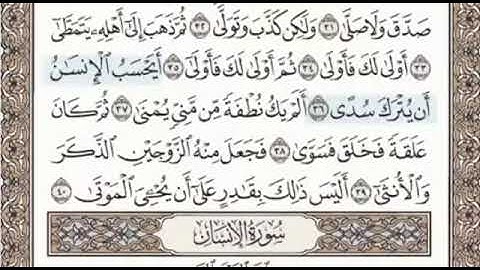 صَدَّقَ وَلَا صَلَّىٰ ٣١ وَلَٰكِن كَذَّبَ وَتَوَلَّىٰ ٣٢ ثُمَّ ذَهَبَ إِلَىٰٓ أَهْلِهِۦ يَتَمَطَّىٰٓ
٣٣ أَوْلَىٰ لَكَ فَأَوْلَىٰ ٣٤ ثُمَّ أَوْلَىٰ لَكَ فَأَوْلَىٰٓ ٣٥ أَيَحْسَبُ ٱلْإِنسَٰنُ
أَن يُتْرَكَ سُدًى ٣٦ أَلَمْ يَكُ نُطْفَةً مِّن مَّنِىٍّ يُمْنَىٰ ٣٧ ثُمَّ كَانَ
عَلَقَةً فَخَلَقَ فَسَوَّىٰ ٣٨ فَجَعَلَ مِنْهُ ٱلزَّوْجَيْنِ ٱلذَّكَرَ
وَٱلْأُنثَىٰٓ ٣٩ أَلَيْسَ ذَٰلِكَ بِقَٰدِرٍ عَلَىٰٓ أَن يُحْـِۧىَ ٱلْمَوْتَىٰ ٤٠
سُورَةُ الإِنسَانِ